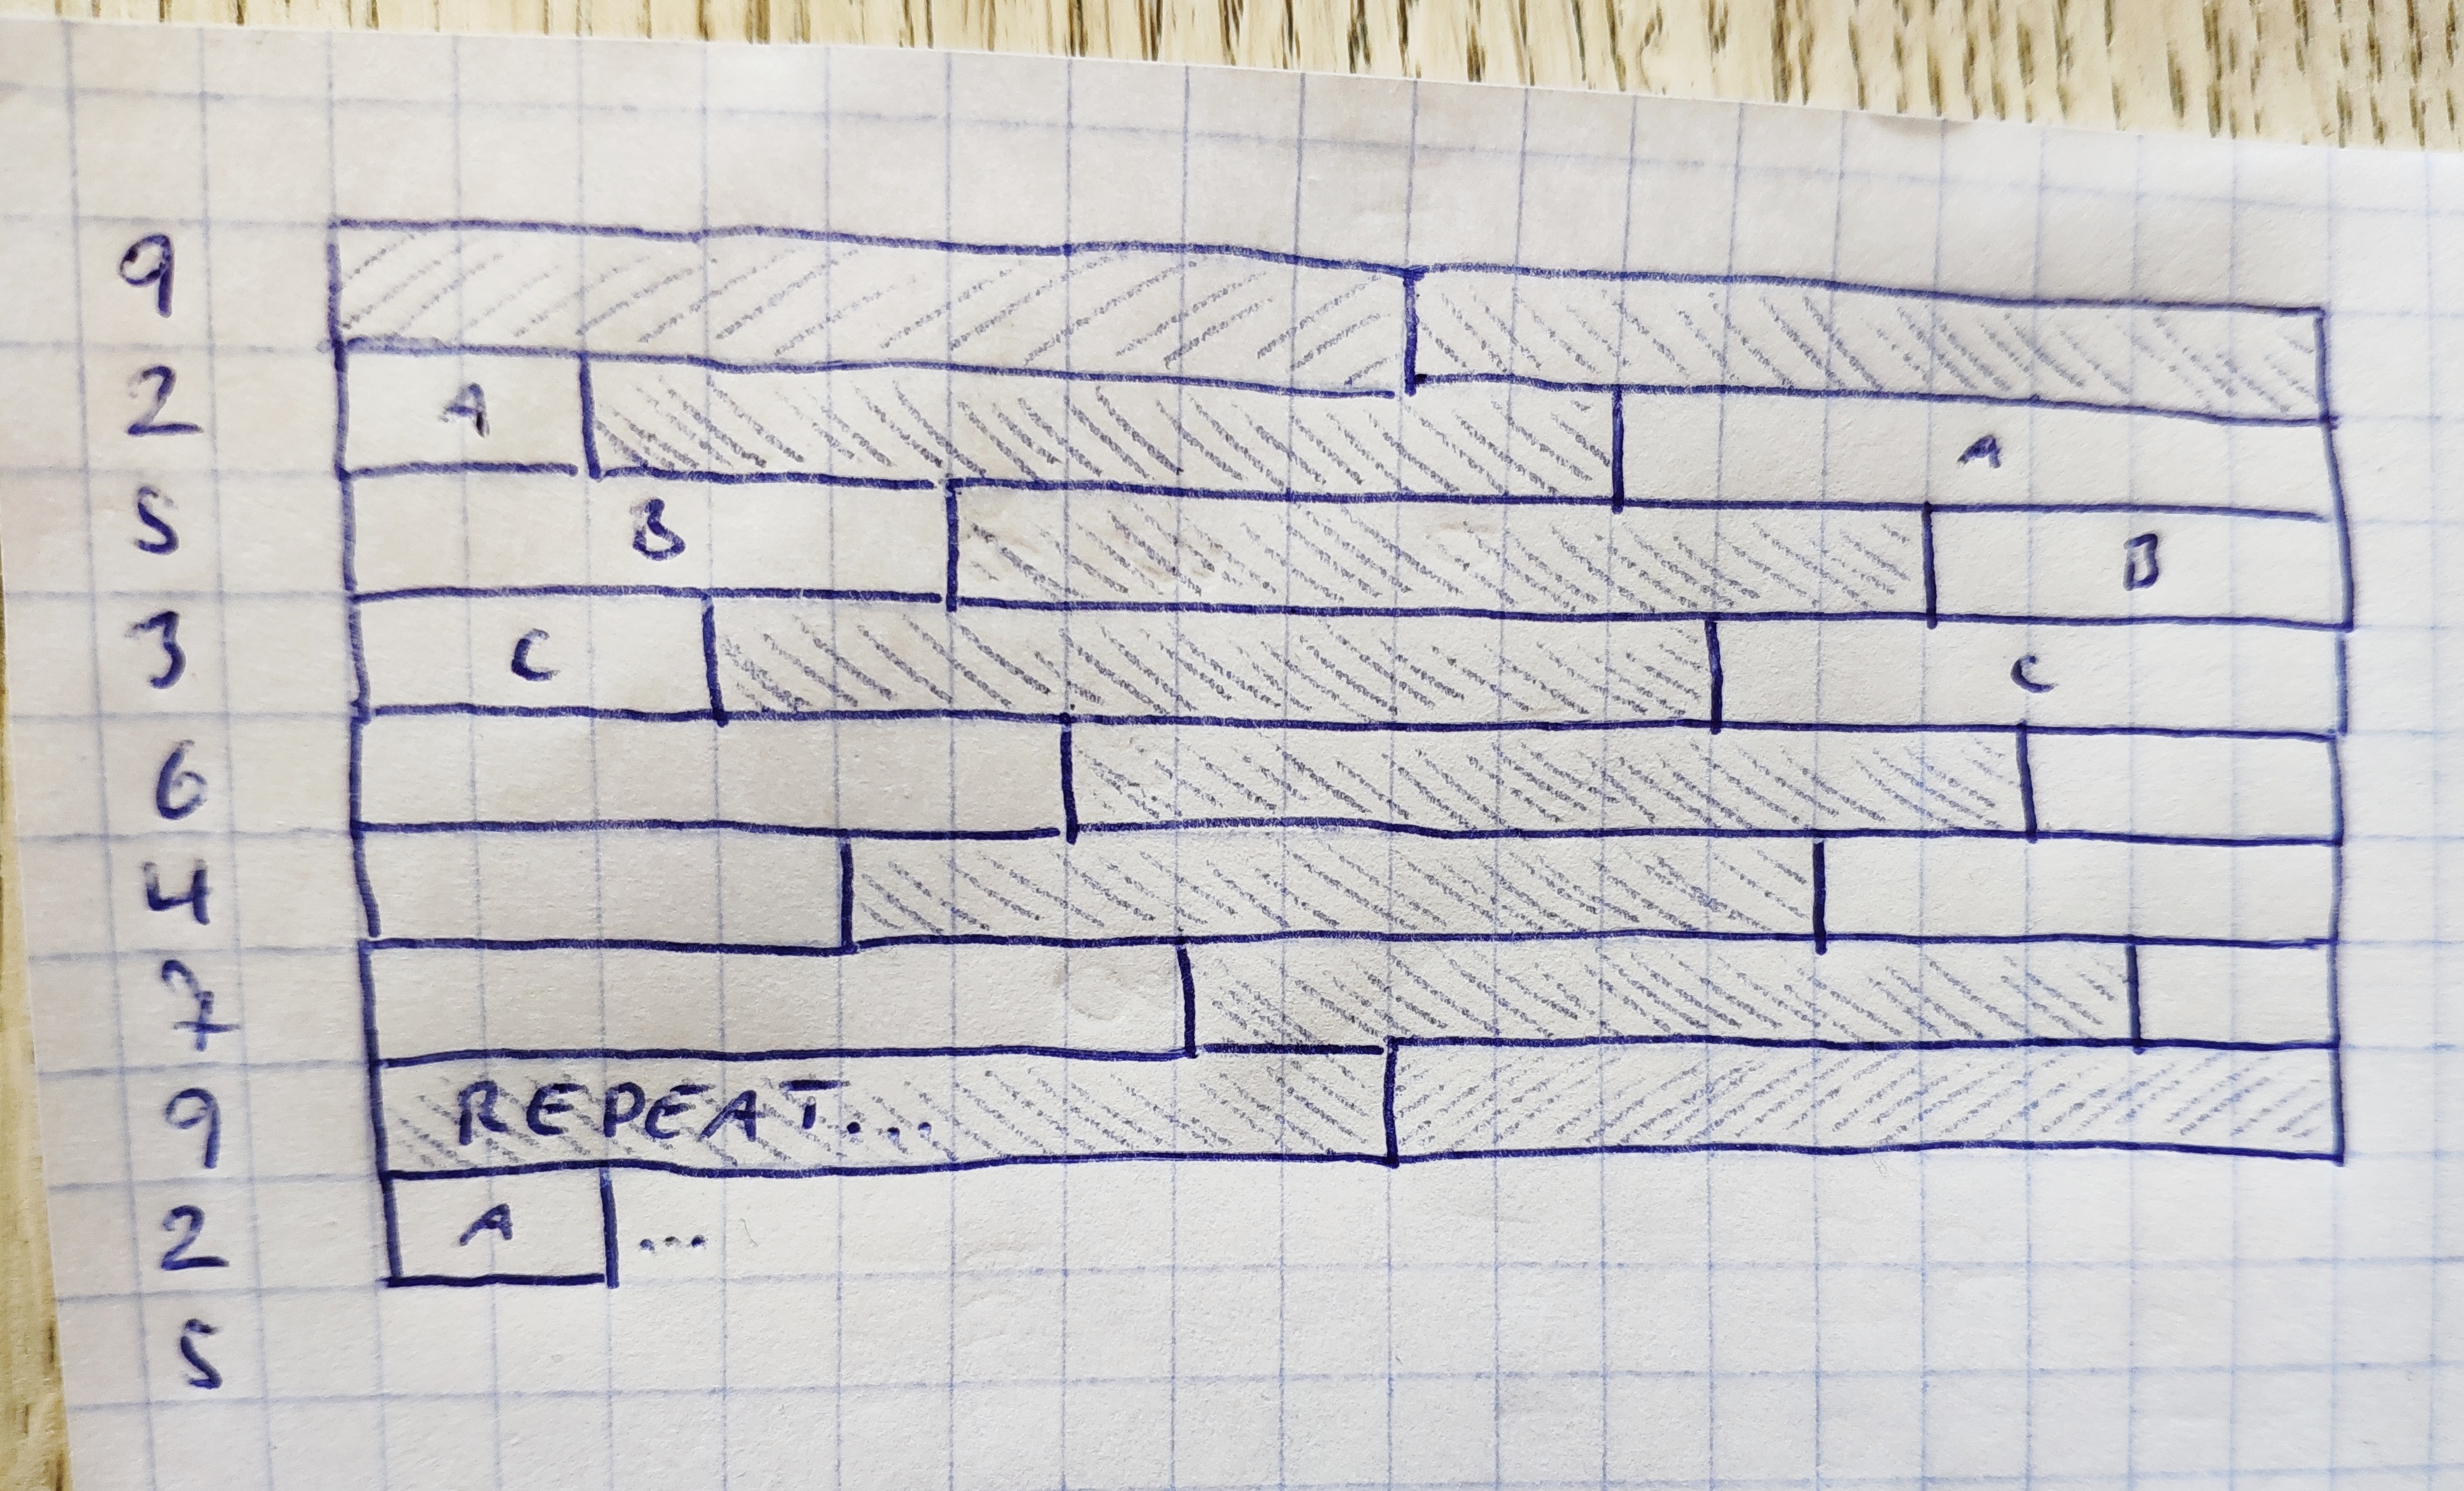 9
2 A A
5 B B
3 C C
6
4
7
9 REPEAT...
2 A ...
5